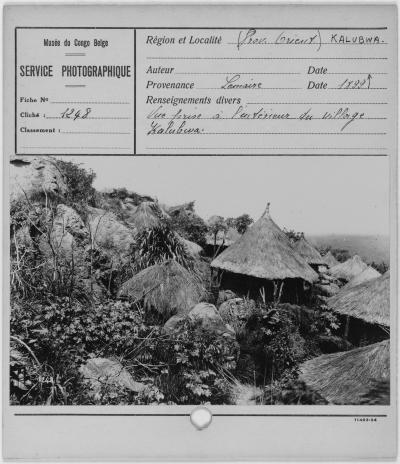 Musée du Congo Belge
SERVICE PHOTOGRAPHIQUE
Fiche Nº
Cliché : 1248
Classement :
Région et Localité (Prov. Orient) KALUBWA.
Auteur Date
Provenance Lemaire Date 1899
Renseignements divers
Vue prise à l'intérieur du village
Kalubwa.
1248